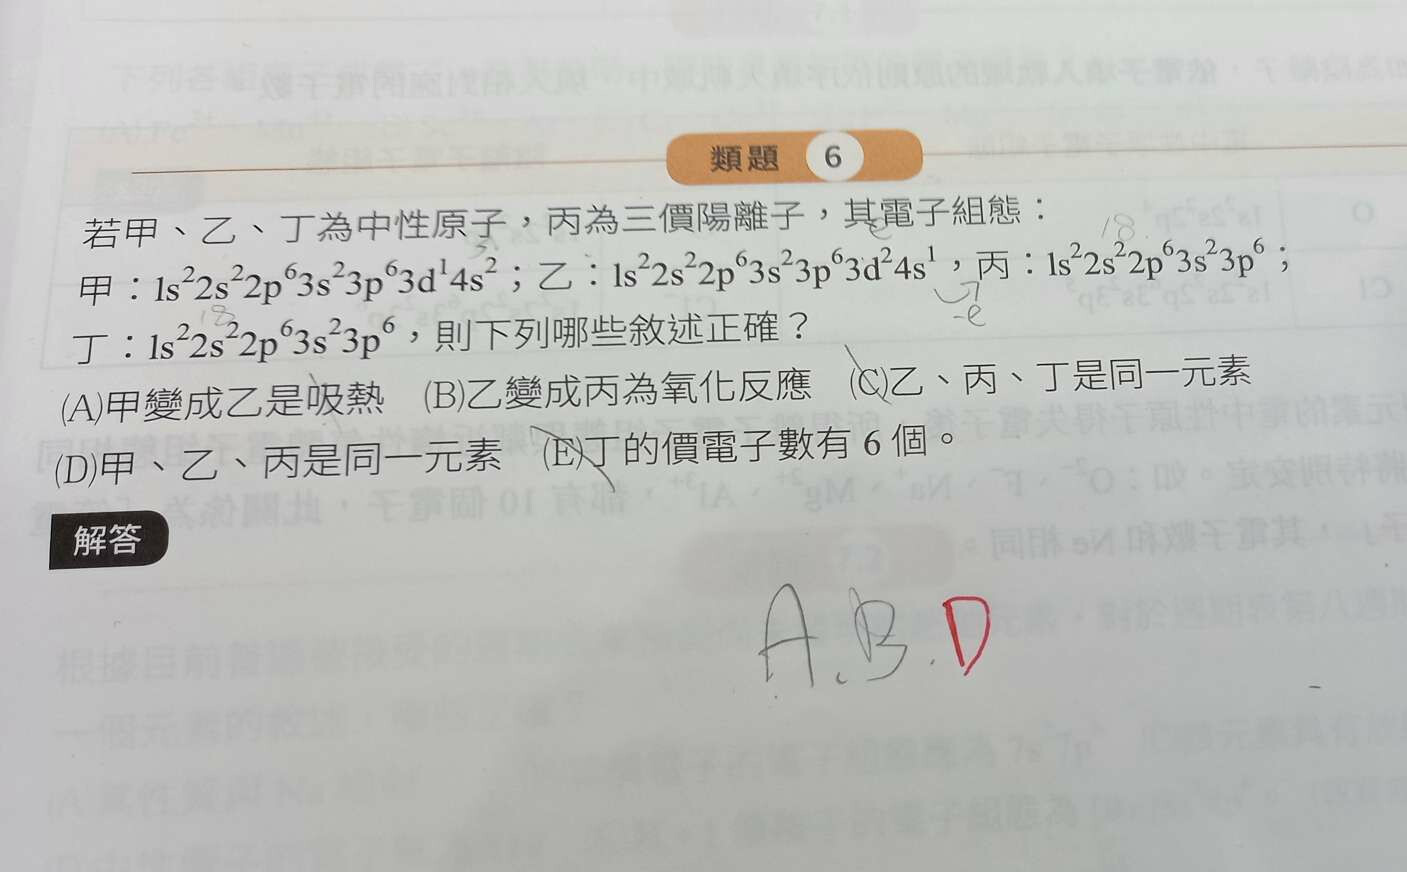 類題 6
若甲、乙、丁為中性原子，丙為三價陽離子，其電子組態：
甲：1s²2s²2p⁶3s²3p⁶3d¹4s²；乙：1s²2s²2p⁶3s²3p⁶3d²4s¹，丙：1s²2s²2p⁶3s²3p⁶；
丁：1s²2s²2p⁶3s²3p⁶，則下列哪些敘述正確？
(A)甲變成乙是吸熱 (B)乙變成丙為氧化反應 (C)乙、丙、丁是同一元素
(D)甲、乙、丙是同一元素 (E)丁的價電子數有 6 個。
解答
A.B.D
18
18
-e